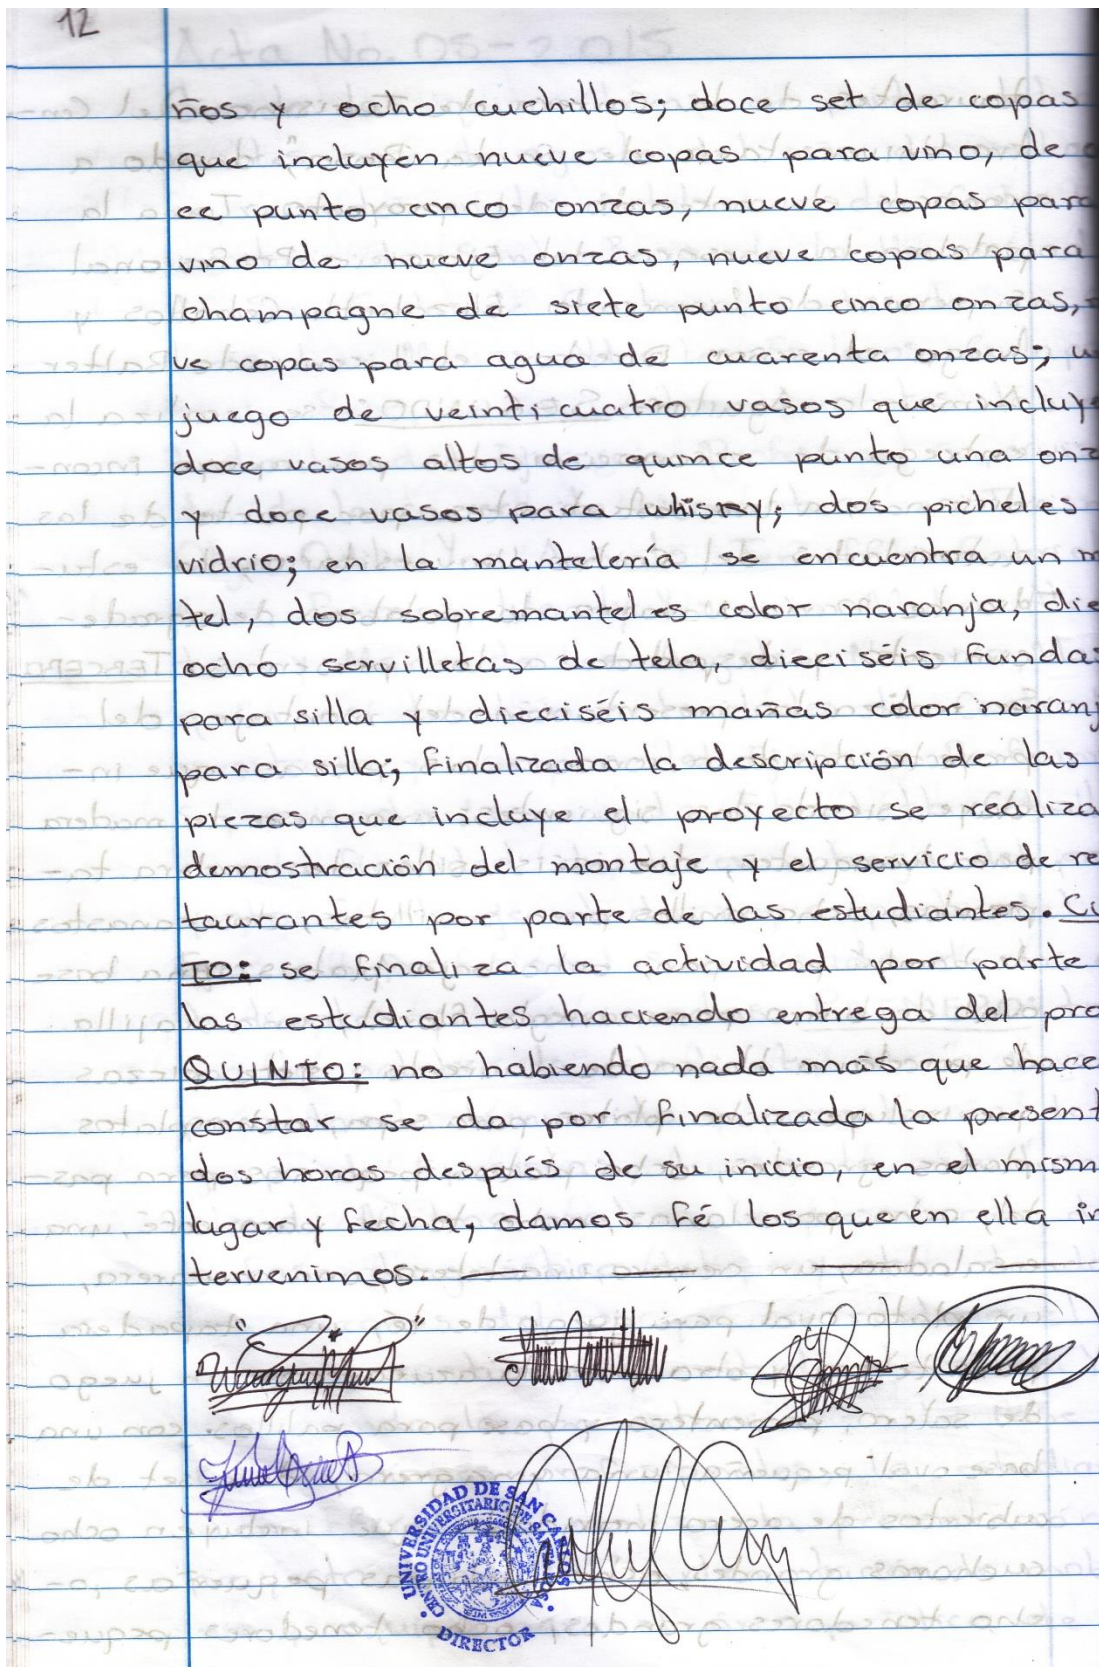 12
ños y ocho cuchillos; doce set de copas
que incluyen nueve copas para vino, de
ce punto cinco onzas, nueve copas para
vino de nueve onzas, nueve copas para
champagne de siete punto cinco onzas,
ve copas para agua de cuarenta onzas; u
juego de veinticuatro vasos que incluye
doce vasos altos de quince punto una onz
y doce vasos para whisky; dos picheles
vidrio; en la mantelería se encuentra un m
tel, dos sobremanteles color naranja, die
ocho servilletas de tela, dieciséis fundas
para silla y dieciséis mañas color naranj
para silla; finalizada la descripción de las
piezas que incluye el proyecto se realiza
demostración del montaje y el servicio de re
taurantes por parte de las estudiantes. CU
TO: se finaliza la actividad por parte
las estudiantes haciendo entrega del pro
QUINTO: no habiendo nada más que hace
constar se da por finalizada la present
dos horas después de su inicio, en el mism
lugar y fecha, damos fé los que en ella in
tervenimos.
UNIVERSIDAD DE SAN CARLOS
CENTRO UNIVERSITARIO DE SANTA ROSA
DIRECTOR